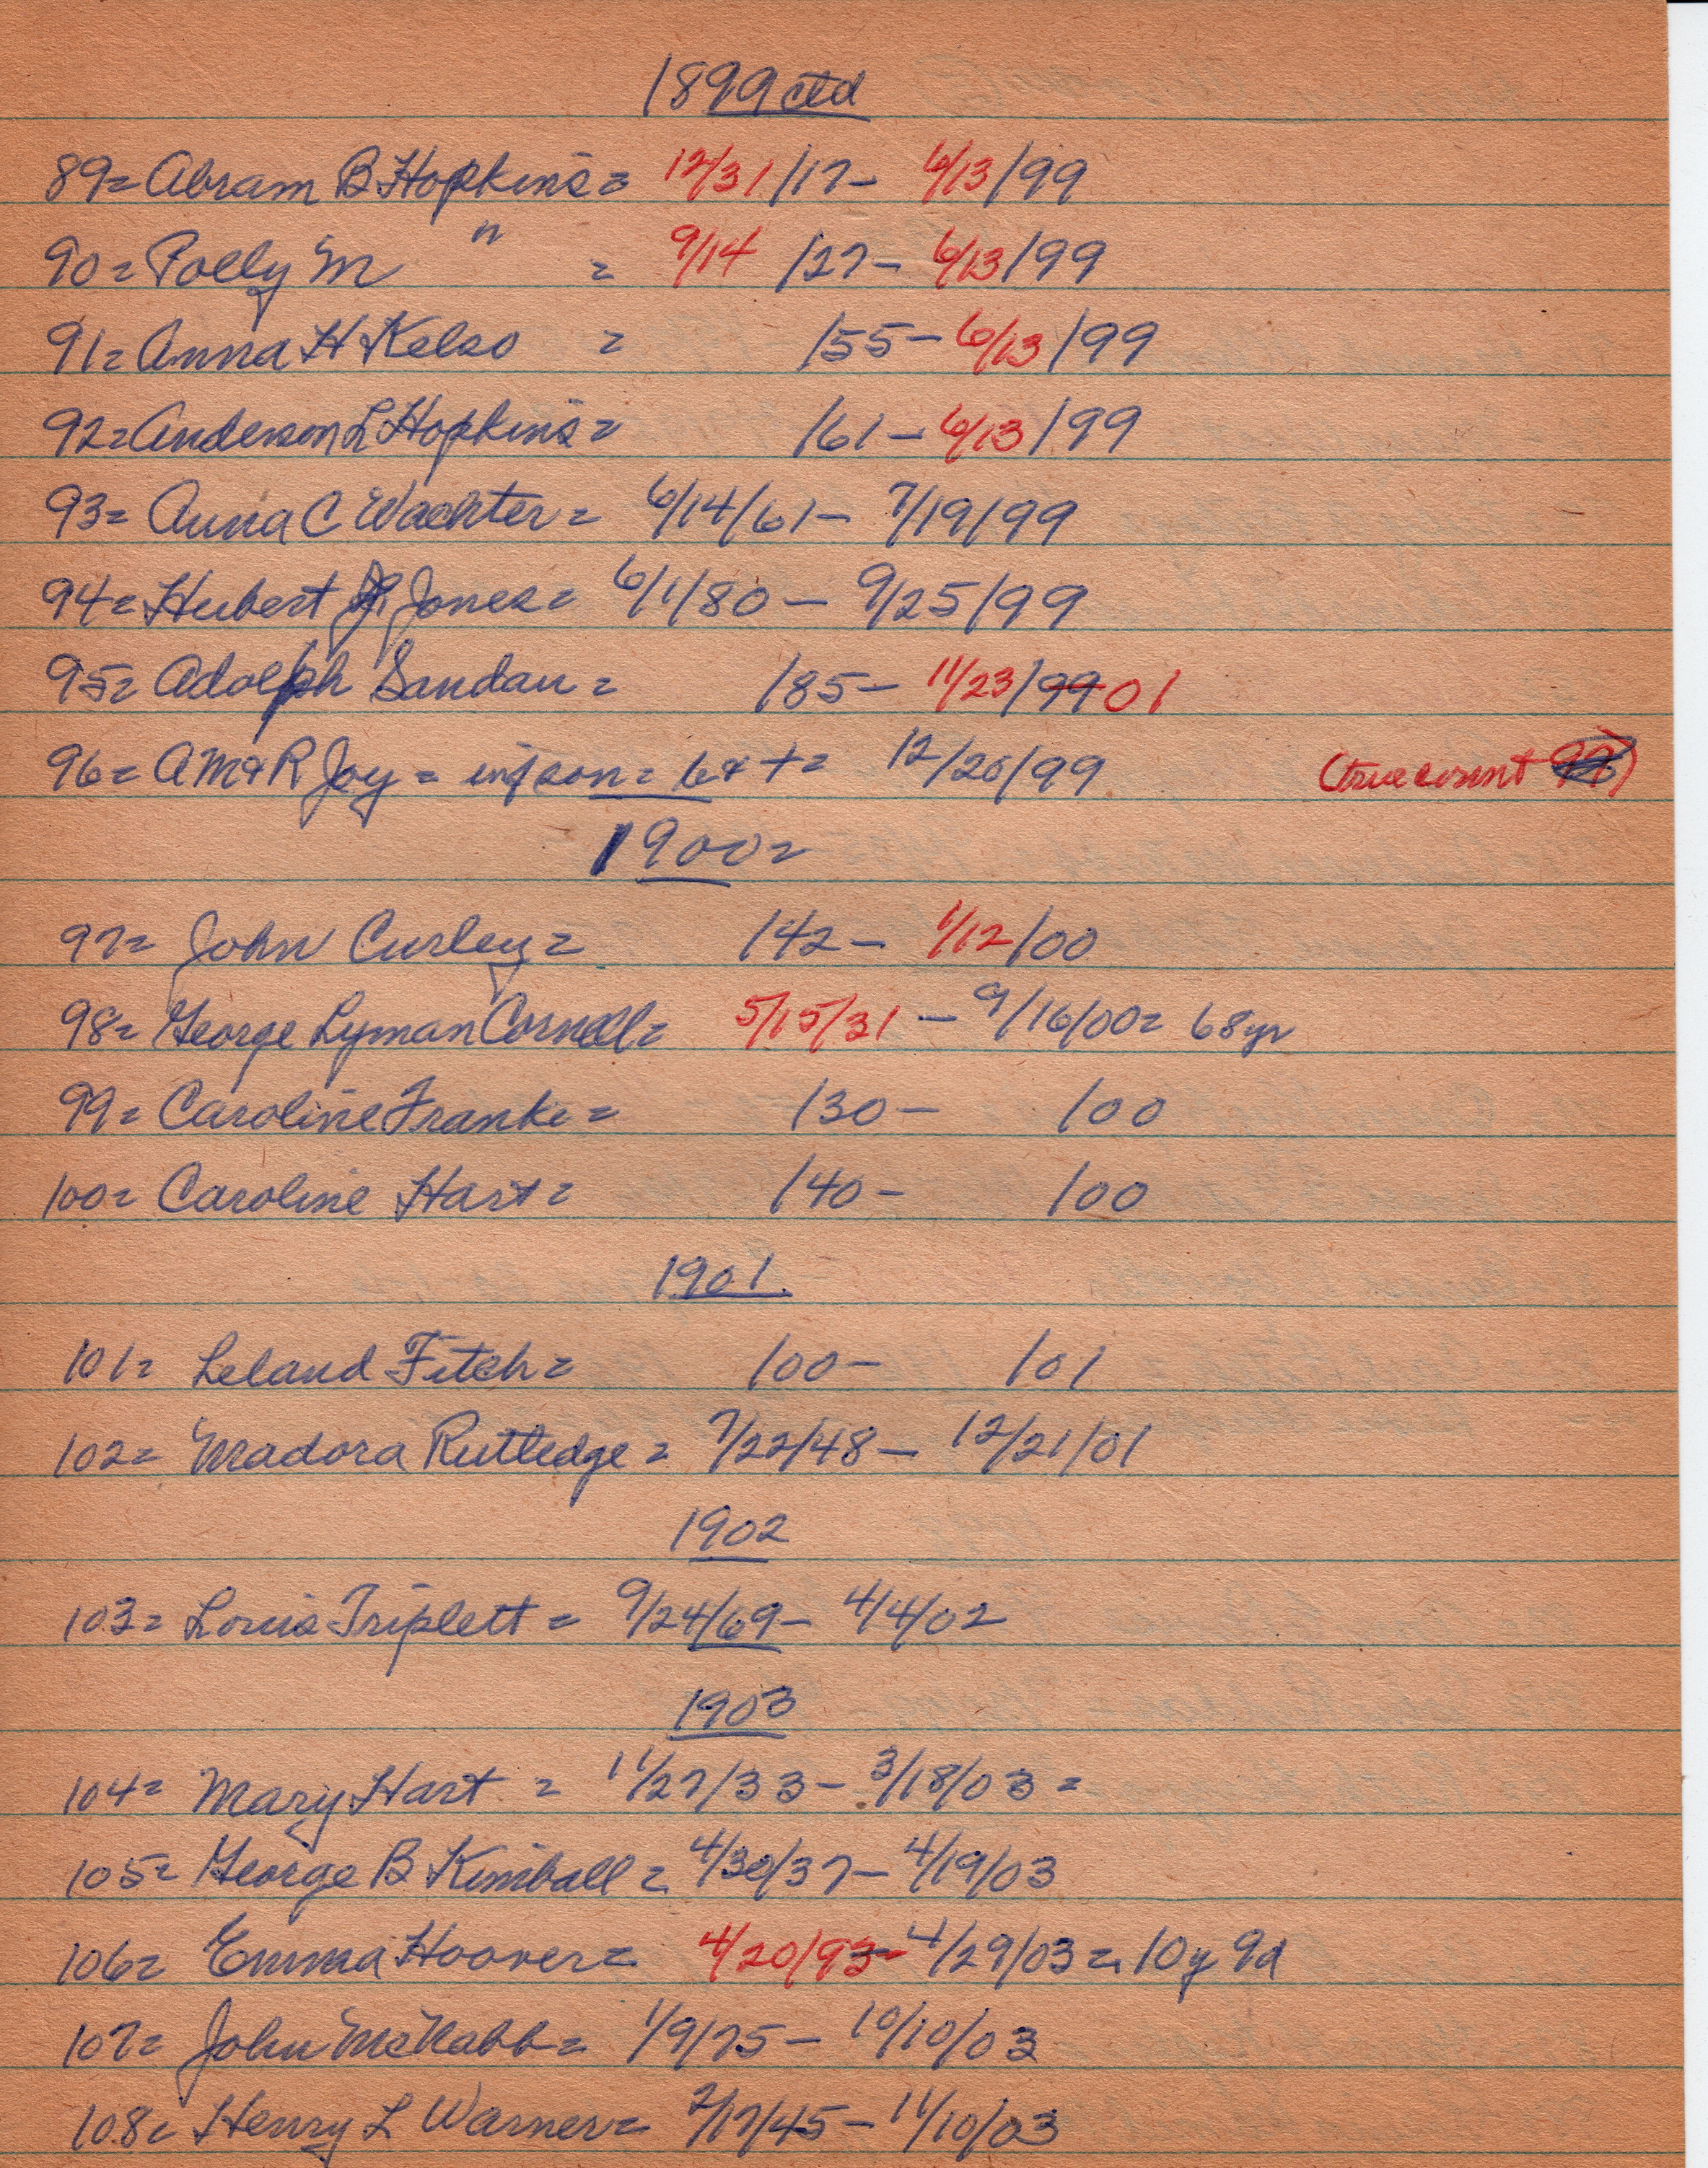 1899 ctd
89= Abram B Hopkins= 12/31/17- 6/13/99
90= Polly M " = 9/14 /27- 6/13/99
91= Anna H Kelso = /55- 6/13/99
92= Anderson L Hopkins= /61- 6/13/99
93= Anna C Wachter= 6/14/61- 7/19/99
94= Hubert Jones= 6/1/80- 9/25/99
95= Adolph Sandau= /85- 11/23/99 01
96= AM&R Joy= inf son= 6& += 12/20/99 (true count
1900=
97= John Curley= /42- 1/12/00
98= George Lyman Cornell= 5/15/31 - 9/16/00= 68yr
99= Caroline Franke= /30- /00
100= Caroline Hart= /40- /00
1901.
101= Leland Fitch= /00- /01
102= Madora Rutledge= 7/22/48- 12/21/01
1902
103= Louis Triplett= 9/24/69- 4/4/02
1903
104= Mary Hart = 11/27/33- 3/18/03=
105= George B Kimball= 4/30/37- 4/19/03
106= Emma Hoover= 4/20/93- 4/29/03= 10y 9d
107= John McNabb= 1/9/75- 10/10/03
108= Henry L Warner= 2/17/45- 11/10/03